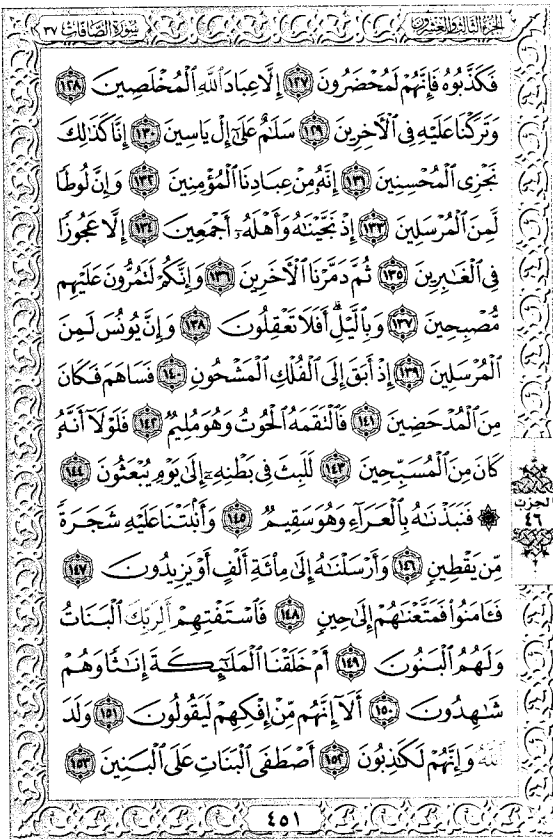 الجزء الثالث والعشرون سورة الصافات ٣٧
فَكَذَّبُوهُ فَإِنَّهُمْ لَمُحْضَرُونَ ١٢٧ إِلَّا عِبَادَ ٱللَّهِ ٱلْمُخْلَصِينَ ١٢٨
وَتَرَكْنَا عَلَيْهِ فِى ٱلْأَخِرِينَ ١٢٩ سَلَٰمٌ عَلَىٰٓ إِلْ يَاسِينَ ١٣٠ إِنَّا كَذَٰلِكَ
نَجْزِى ٱلْمُحْسِنِينَ ١٣١ إِنَّهُۥ مِنْ عِبَادِنَا ٱلْمُؤْمِنِينَ ١٣٢ وَإِنَّ لُوطًا
لَّمِنَ ٱلْمُرْسَلِينَ ١٣٣ إِذْ نَجَّيْنَٰهُ وَأَهْلَهُۥٓ أَجْمَعِينَ ١٣٤ إِلَّا عَجُوزًا
فِى ٱلْغَٰبِرِينَ ١٣٥ ثُمَّ دَمَّرْنَا ٱلْأَخَرِينَ ١٣٦ وَإِنَّكُمْ لَتَمُرُّونَ عَلَيْهِم
مُّصْبِحِينَ ١٣٧ وَبِٱلَّيْلِ ۗ أَفَلَا تَعْقِلُونَ ١٣٨ وَإِنَّ يُونُسَ لَمِنَ
ٱلْمُرْسَلِينَ ١٣٩ إِذْ أَبَقَ إِلَى ٱلْفُلْكِ ٱلْمَشْحُونِ ١٤٠ فَسَاهَمَ فَكَانَ
مِنَ ٱلْمُدْحَضِينَ ١٤١ فَٱلْتَقَمَهُ ٱلْحُوتُ وَهُوَ مُلِيمٌ ١٤٢ فَلَوْلَآ أَنَّهُۥ
كَانَ مِنَ ٱلْمُسَبِّحِينَ ١٤٣ لَلَبِثَ فِى بَطْنِهِۦٓ إِلَىٰ يَوْمِ يُبْعَثُونَ ١٤٤
۞ فَنَبَذْنَٰهُ بِٱلْعَرَآءِ وَهُوَ سَقِيمٌ ١٤٥ وَأَنۢبَتْنَا عَلَيْهِ شَجَرَةً
مِّن يَقْطِينٍ ١٤٦ وَأَرْسَلْنَٰهُ إِلَىٰ مِا۟ئَةِ أَلْفٍ أَوْ يَزِيدُونَ ١٤٧
فَـَٔامَنُوا۟ فَمَتَّعْنَٰهُمْ إِلَىٰ حِينٍ ١٤٨ فَٱسْتَفْتِهِمْ أَلِرَبِّكَ ٱلْبَنَاتُ
وَلَهُمُ ٱلْبَنُونَ ١٤٩ أَمْ خَلَقْنَا ٱلْمَلَٰٓئِكَةَ إِنَٰثًا وَهُمْ
شَٰهِدُونَ ١٥٠ أَلَآ إِنَّهُم مِّنْ إِفْكِهِمْ لَيَقُولُونَ ١٥١ وَلَدَ
ٱللَّهُ وَإِنَّهُمْ لَكَٰذِبُونَ ١٥٢ أَصْطَفَى ٱلْبَنَاتِ عَلَى ٱلْبَنِينَ ١٥٣
الحزب
٤٦
٤٥١